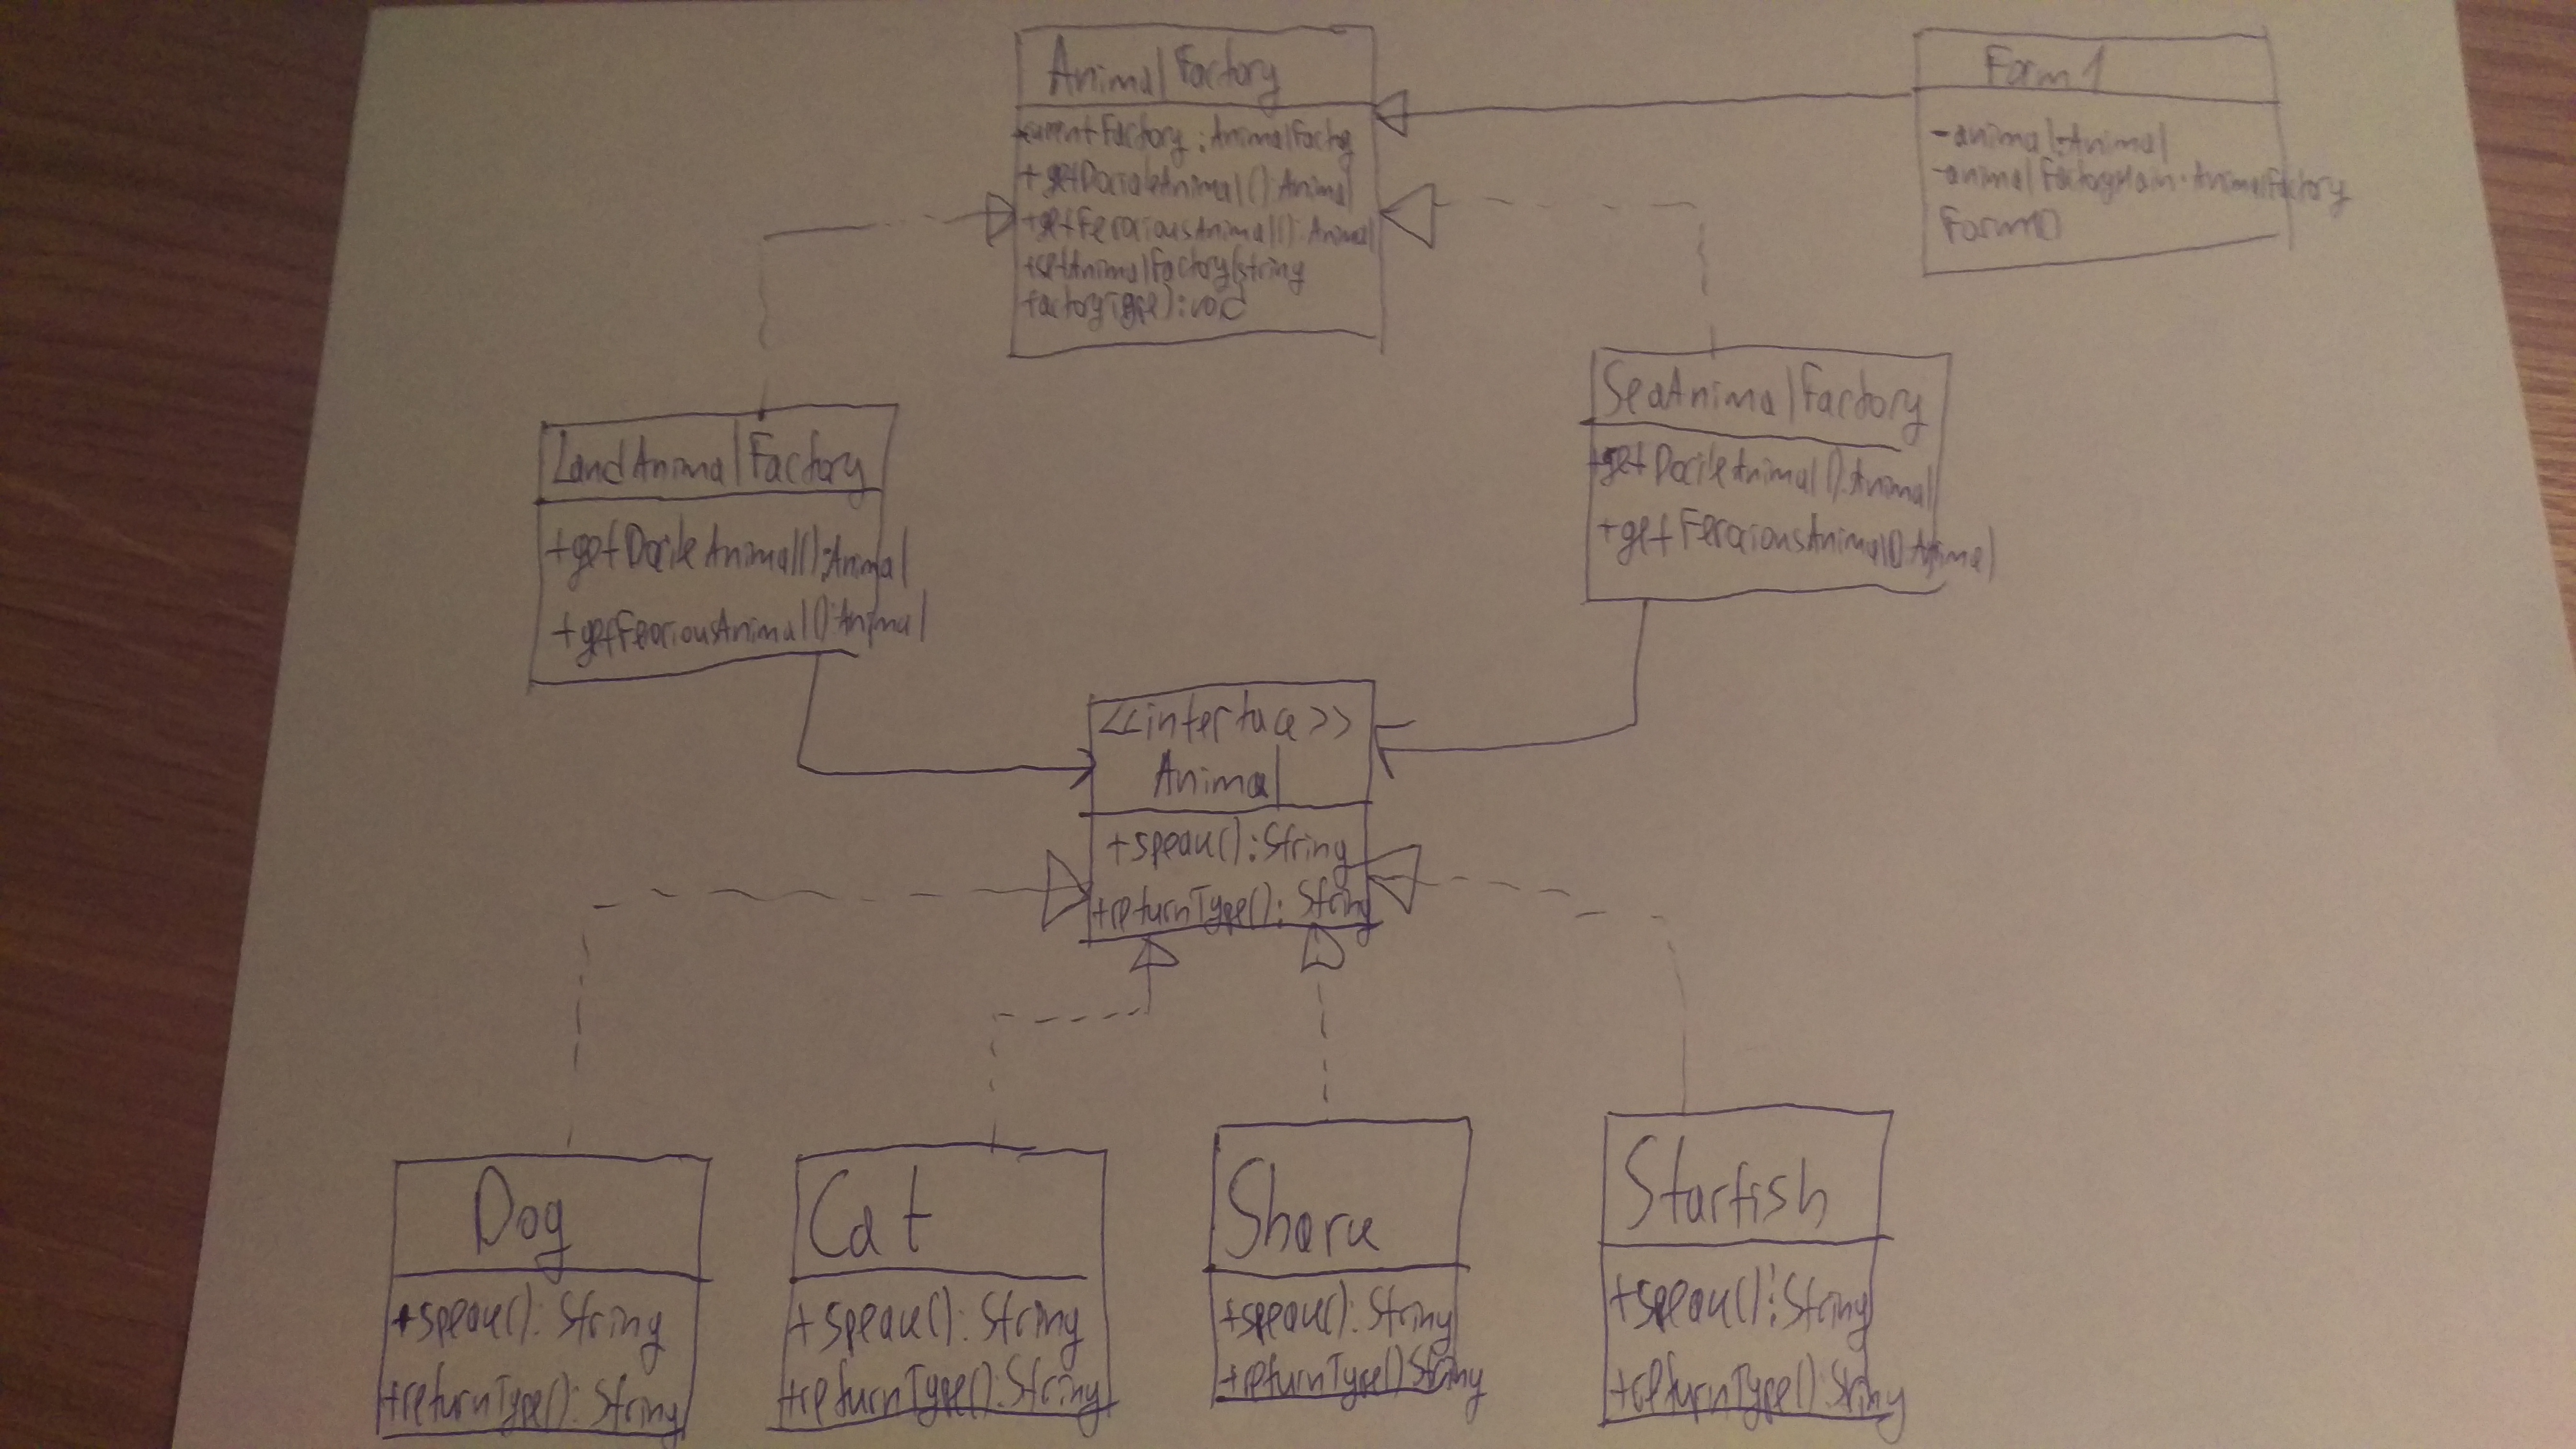 AnimalFactory
-currentFactory: AnimalFactory
+getDocialeAnimal(): Animal
+getFerociousAnimal(): Animal
+setAnimalFactory(string
factoryType): void
Form1
-animal: Animal
-animalFactoryMain: AnimalFactory
Form1()
LandAnimalFactory
+getDocileAnimal(): Animal
+getFerociousAnimal(): Animal
SeaAnimalFactory
+getDocileAnimal(): Animal
+getFerociousAnimal(): Animal
<<interface>>
Animal
+speak(): String
+returnType(): String
Dog
+speak(): String
+returnType(): String
Cat
+speak(): String
+returnType(): String
Shark
+speak(): String
+returnType() String
Starfish
+speak(): String
+returnType(): String